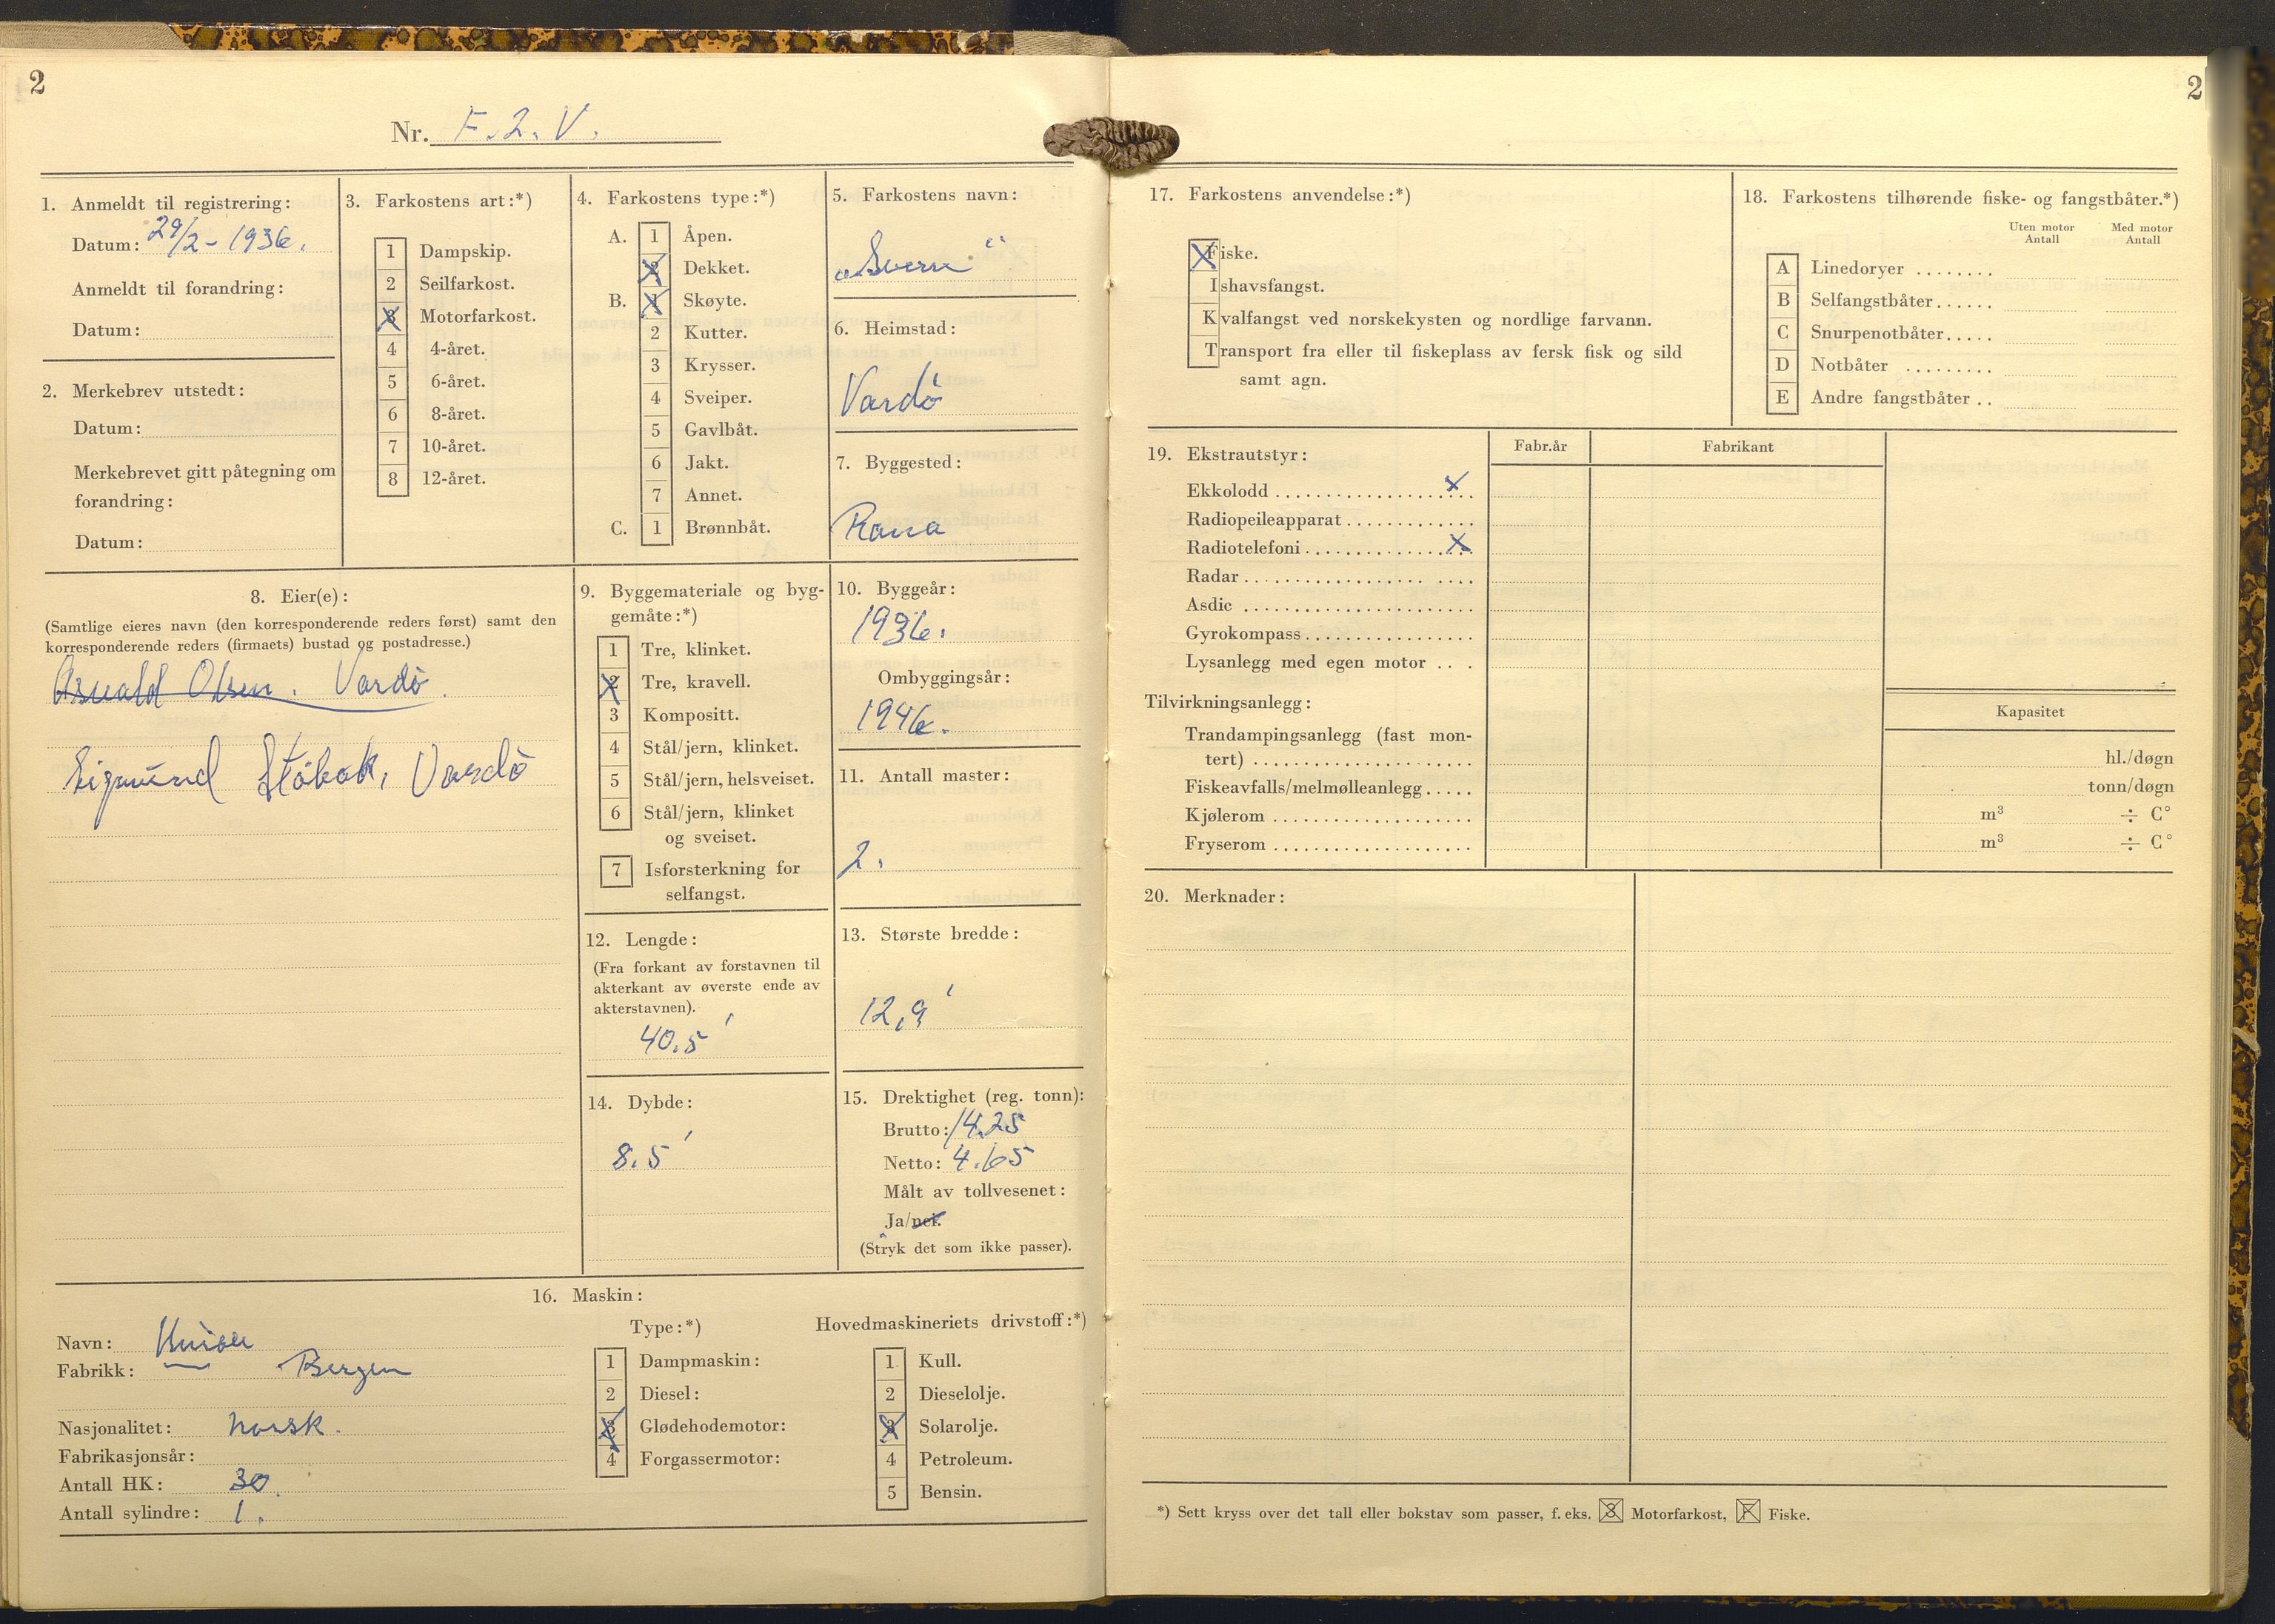 2
Nr. F. 2. V.
1. Anmeldt til registrering:
Datum: 29/2 - 1936.
Anmeldt til forandring:
Datum:
2. Merkebrev utstedt:
Datum:
Merkebrevet gitt påtegning om
forandring:
Datum:
3. Farkostens art:*)
1 Dampskip.
2 Seilfarkost.
3 Motorfarkost.
4 4-året.
5 6-året.
6 8-året.
7 10-året.
8 12-året.
4. Farkostens type:*)
A. 1 Åpen.
2 Dekket.
B. 1 Skøyte.
2 Kutter.
3 Krysser.
4 Sveiper.
5 Gavlbåt.
6 Jakt.
7 Annet.
C. 1 Brønnbåt.
5. Farkostens navn:
„Sverre"
6. Heimstad:
Vardö
7. Byggested:
Rana
8. Eier(e):
(Samtlige eieres navn (den korresponderende reders først) samt den
korresponderende reders (firmaets) bustad og postadresse.)
Asvald Olsen. Vardö.
Sigmund Stöbak, Vardö
9. Byggemateriale og byg-
gemåte:*)
1 Tre, klinket.
2 Tre, kravell.
3 Kompositt.
4 Stål/jern, klinket.
5 Stål/jern, helsveiset.
6 Stål/jern, klinket
og sveiset.
7 Isforsterkning for
selfangst.
10. Byggeår:
1936.
Ombyggingsår:
1946.
11. Antall master:
2.
12. Lengde:
(Fra forkant av forstavnen til
akterkant av øverste ende av
akterstavnen).
40.5'
13. Største bredde:
12,9'
14. Dybde:
8.5'
15. Drektighet (reg. tonn):
Brutto: 14.25
Netto: 4.65
Målt av tollvesenet:
Ja/nei.
(Stryk det som ikke passer).
16. Maskin:
Navn: Union
Fabrikk: — Bergen
Nasjonalitet: norsk.
Fabrikasjonsår:
Antall HK: 30.
Antall sylindre: 1.
Type:*)
1 Dampmaskin:
2 Diesel:
3 Glødehodemotor:
4 Forgassermotor:
Hovedmaskineriets drivstoff:*)
1 Kull.
2 Dieselolje.
3 Solarolje.
4 Petroleum.
5 Bensin.
2
17. Farkostens anvendelse:*)
Fiske.
Ishavsfangst.
Kvalfangst ved norskekysten og nordlige farvann.
Transport fra eller til fiskeplass av fersk fisk og sild
samt agn.
18. Farkostens tilhørende fiske- og fangstbåter.*)
Uten motor Antall
Med motor Antall
A Linedoryer ........
B Selfangstbåter......
C Snurpenotbåter.....
D Notbåter .........
E Andre fangstbåter ..
19. Ekstrautstyr:
Fabr.år
Fabrikant
Ekkolodd .................... X
Radiopeileapparat .............
Radiotelefoni ................. X
Radar ....................
Asdic ......................
Gyrokompass .................
Lysanlegg med egen motor ...
Tilvirkningsanlegg:
Kapasitet
Trandampingsanlegg (fast mon-
tert) ...................... hl./døgn
Fiskeavfalls/melmølleanlegg..... tonn/døgn
Kjølerom .................... m³ ÷ C°
Fryserom .................... m³ ÷ C°
20. Merknader:
*) Sett kryss over det tall eller bokstav som passer, f. eks. 3 Motorfarkost, F Fiske.